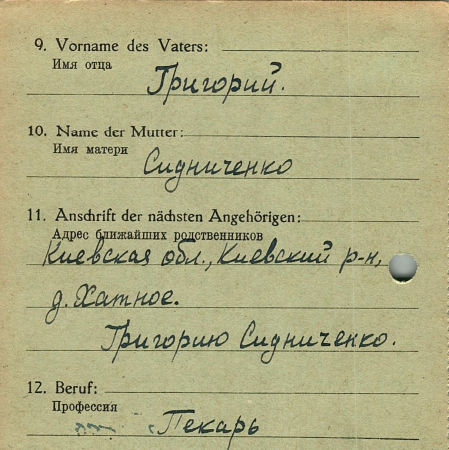 9. Vorname des Vaters:
Имя отца
Григорий.
10. Name der Mutter:
Имя матери
Сидниченко
11. Anschrift der nächsten Angehörigen:
Адрес ближайших родственников
Киевская обл., Киевский р-н,
д. Хатное.
Григорию Сидниченко.
12. Beruf:
Профессия
Пекарь